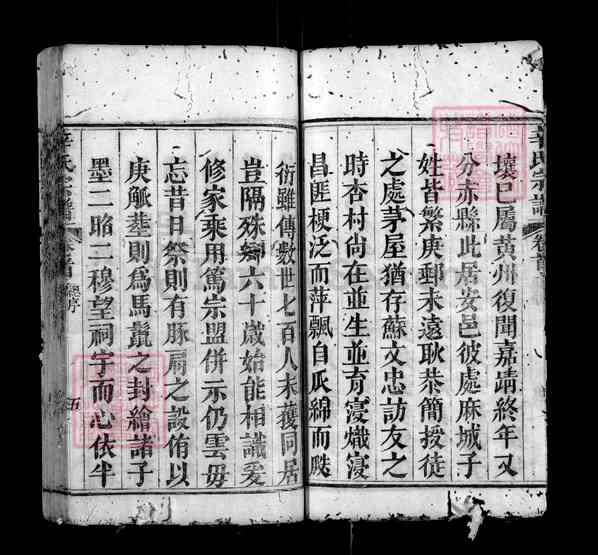 壤已屬黃州復聞嘉靖終年又
分赤縣此居安邑彼處麻城子
姓皆繁庚郵未遠耿恭簡授徒
之處茅屋猶存蘇文忠訪友之
時杏村尙在並生並育寖熾寖
昌匪梗泛而萍飄自瓜綿而瓞
衍雖傳數世七百人未獲同居
豈隔殊鄉六十歲始能相識爰
修家乘用篤宗盟併示仍雲毋
忘昔日祭則有豚肩之設侑以
庚觚塟則爲馬鬣之封繪諸子
墨二昭二穆望祠宇而心依半
辛氏宗譜
卷首
序
五